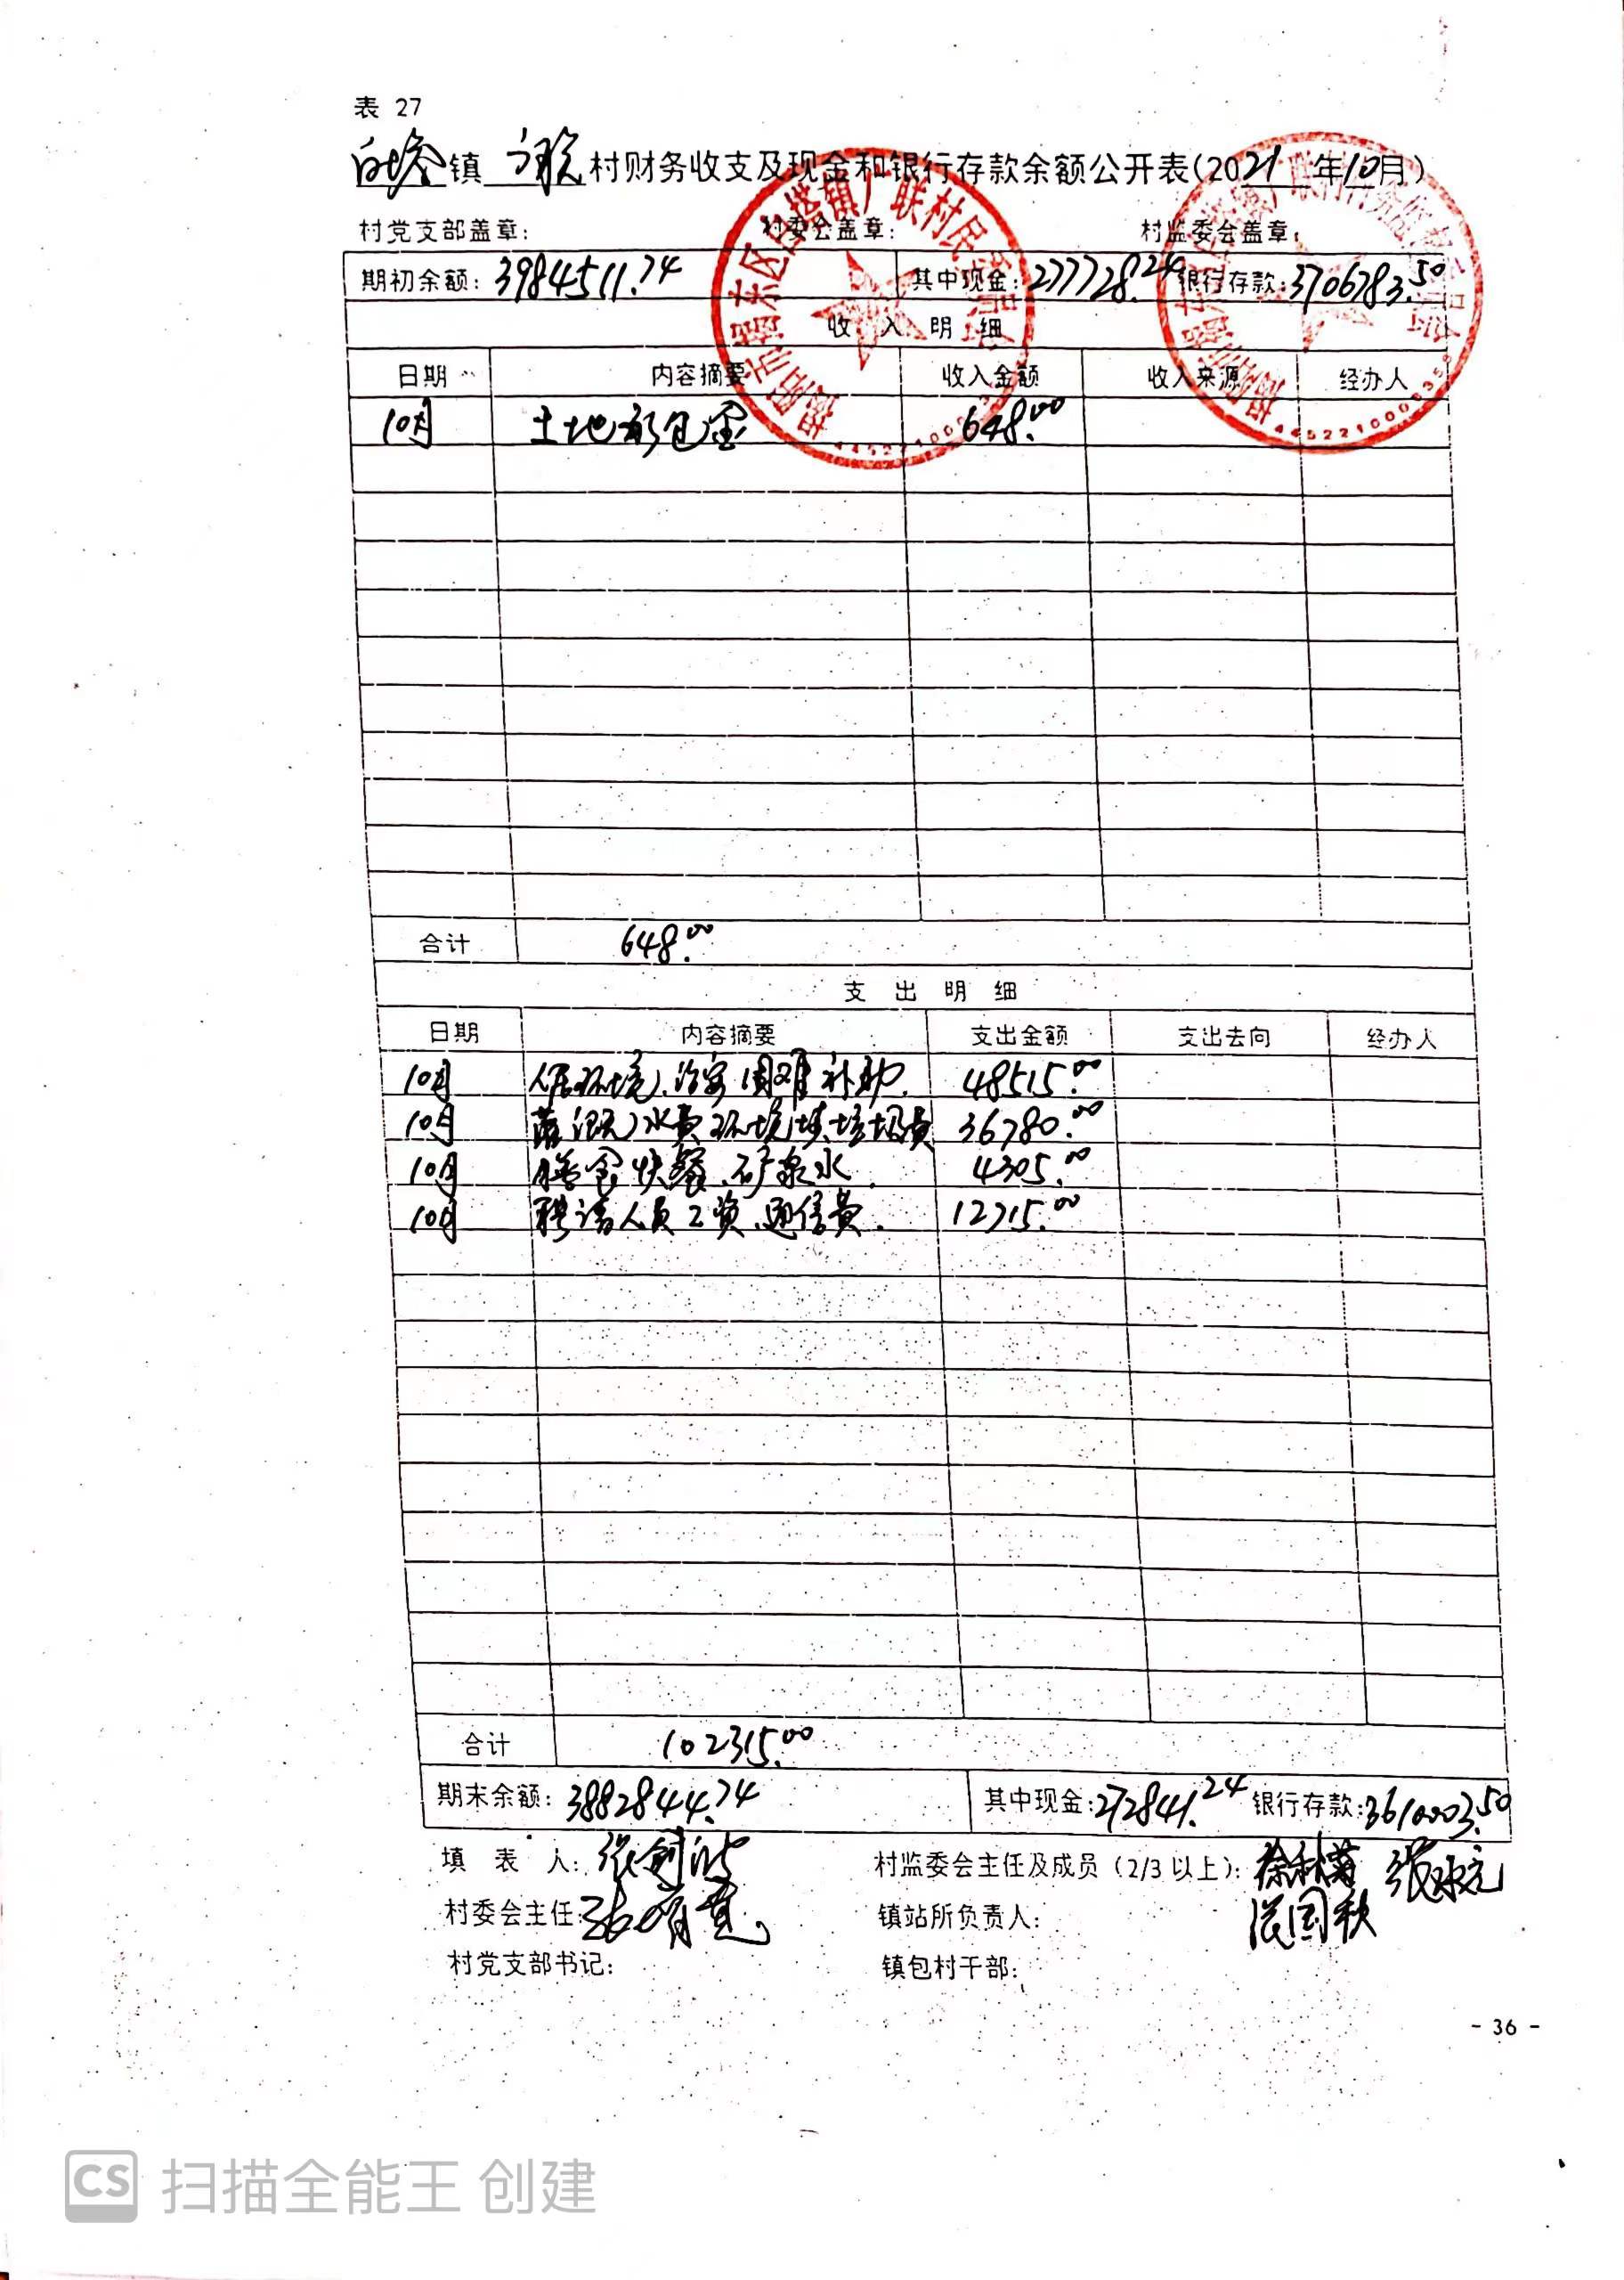 表 27
白塔镇 广联村财务收支及现金和银行存款余额公开表(2021年10月)
村党支部盖章: 村委会盖章: 村监委会盖章:
期初余额: 3984511.74 其中现金: 277728.24 银行存款: 3706783.50
收 入 明 细
日期 内容摘要 收入金额 收入来源 经办人
10月 土地承包金 648.00
合计 648.00
支 出 明 细
日期 内容摘要 支出金额 支出去向 经办人
10月 人居环境、治安、困难补助. 48515.00
10月 水费、环境、垃圾费 36780.00
10月 快餐、矿泉水. 4305.00
10月 聘请人员工资、通信费. 12715.00
合计 102315.00
期末余额: 3882844.74 其中现金: 272841.24 银行存款: 3610003.50
填 表 人: 村监委会主任及成员(2/3以上):
村委会主任: 镇站所负责人:
村党支部书记: 镇包村干部:
- 36 -
CS 扫描全能王 创建